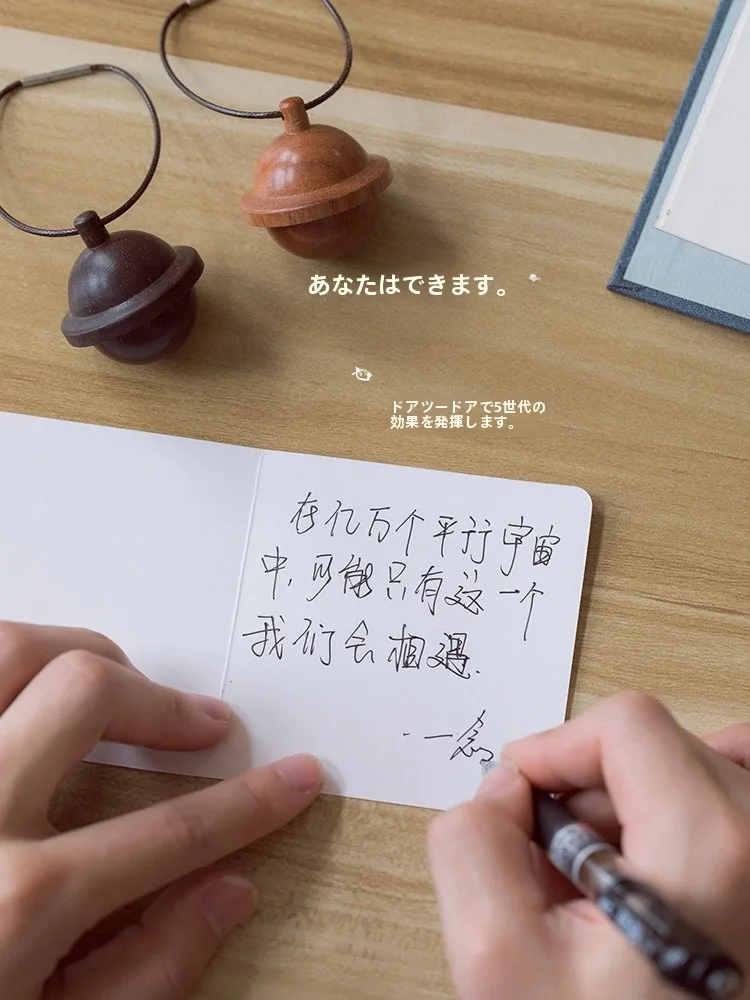 あなたはできます。
ドアツードアで5世代の
効果を発揮します。
在亿万个平行宇宙
中,可能只有这一个
我们会相遇.
·一念